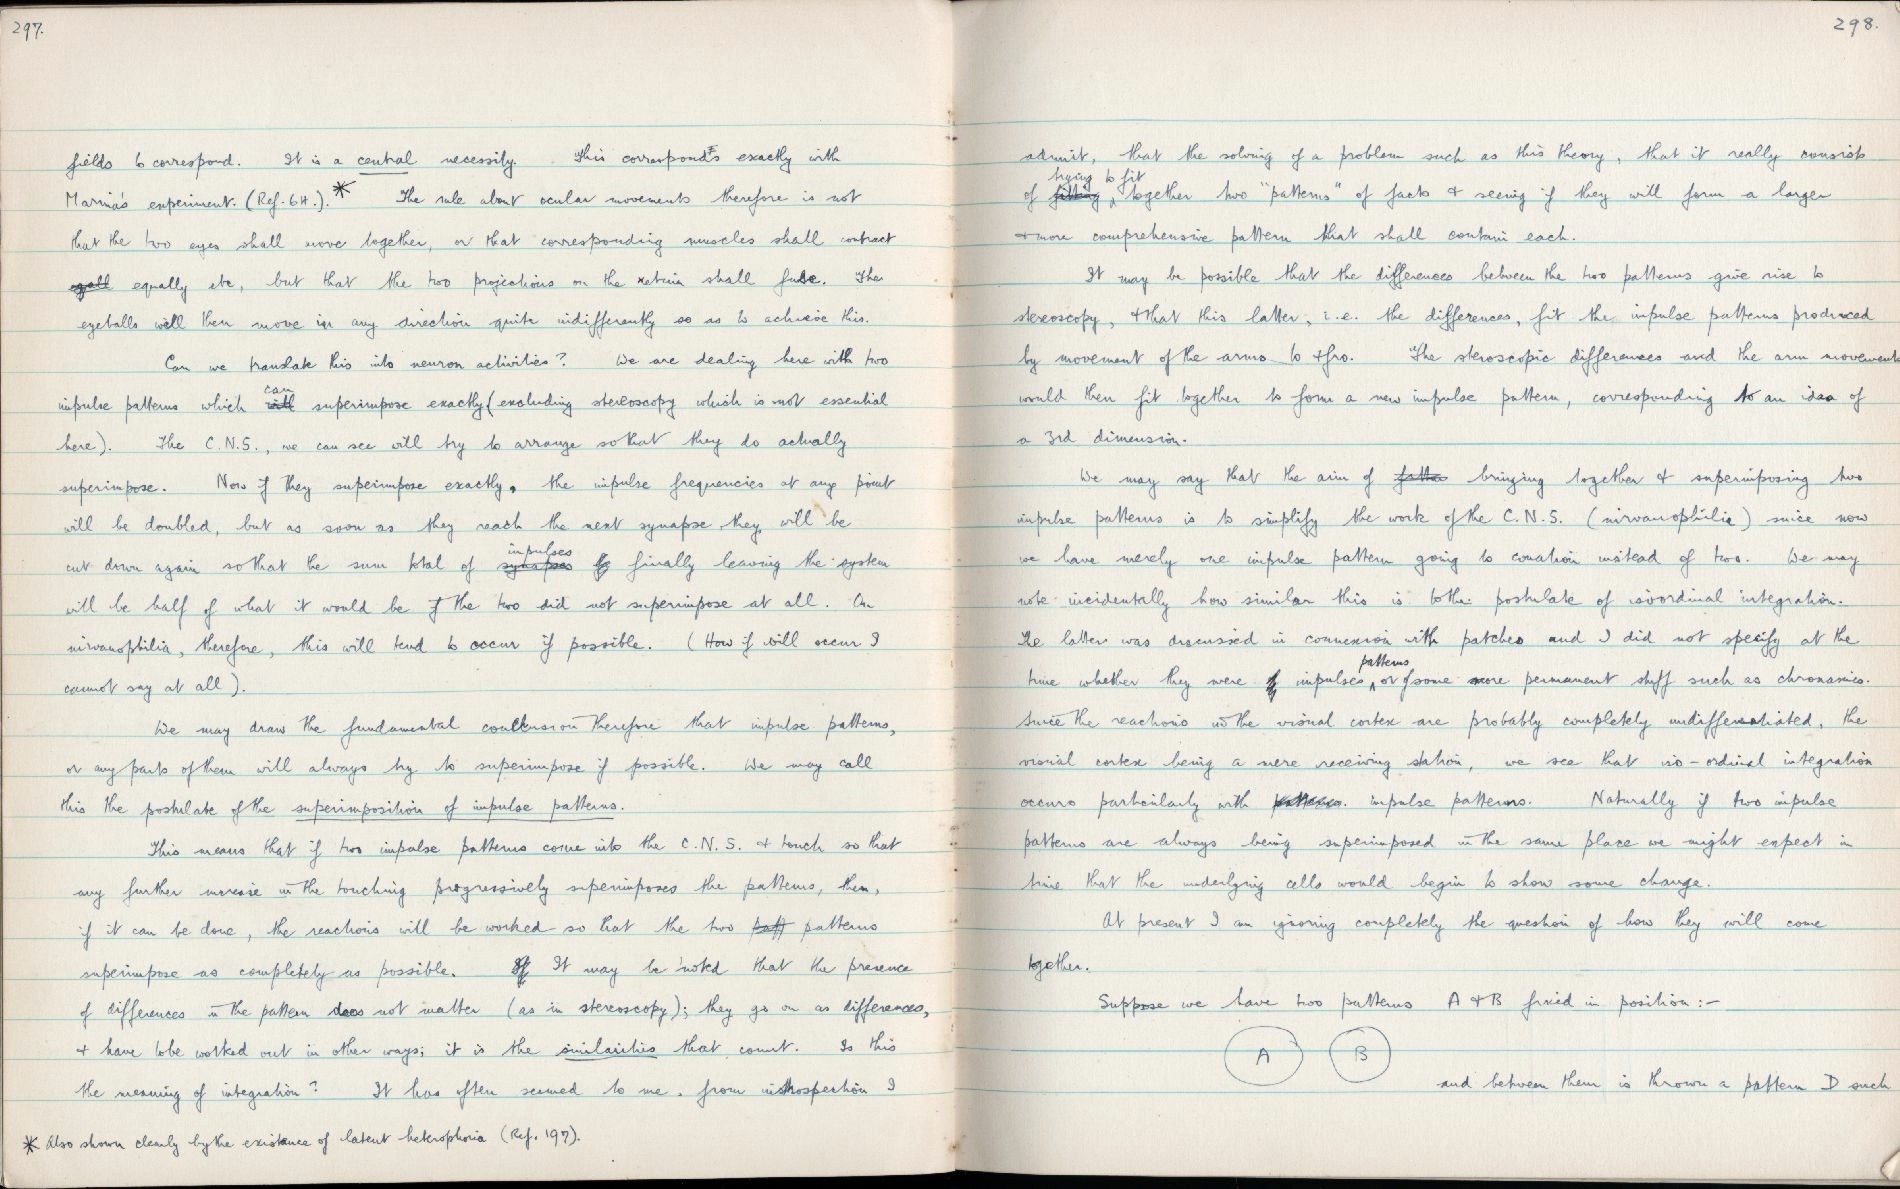 297.
fields to correspond. It is a central necessity. This corresponds exactly with
Marina's experiment. (Ref. 64.).* The rule about ocular movements therefore is not
that the two eyes shall move together, or that corresponding muscles shall contract
equally etc, but that the two projections on the retina shall fuse. The
eyeballs will then move in any direction quite indifferently so as to achieve this.
Can we translate this into neuron activities? We are dealing here with two
can
impulse patterns which will superimpose exactly (excluding stereoscopy which is not essential
here). The C.N.S., we can see will try to arrange so that they do actually
superimpose. Now if they superimpose exactly, the impulse frequencies at any point
will be doubled, but as soon as they reach the next synapse they will be
impulses
cut down again so that the sum total of synapses finally leaving the system
will be half of what it would be if the two did not superimpose at all. On
nirvanophilia, therefore, this will tend to occur if possible. (How it will occur I
cannot say at all).
We may draw the fundamental conclusion therefore that impulse patterns,
or any parts of them will always try to superimpose if possible. We may call
this the postulate of the superimposition of impulse patterns.
This means that if two impulse patterns come into the C.N.S. & touch so that
any further increase in the touching progressively superimposes the patterns, then,
if it can be done, the reactions will be worked so that the two patt patterns
superimpose as completely as possible. If It may be noted that the presence
of differences in the pattern does not matter (as in stereoscopy); they go on as differences,
& have to be worked out in other ways; it is the similarities that count. Is this
the meaning of integration? It has often seemed to me, from introspection I
* Also shown clearly by the existance of latent heterophoria (Ref. 197).
298.
admit, that the solving of a problem such as this theory, that it really consists
trying to fit
of fitting together two "patterns" of facts & seeing if they will form a larger
& more comprehensive pattern that shall contain each.
It may be possible that the differences between the two patterns give rise to
stereoscopy, & that this latter, i.e. the differences, fit the impulse patterns produced
by movement of the arms to & fro. The steroscopic differences and the arm movements
would then fit together to form a new impulse pattern, corresponding to an idea of
a 3rd dimension.
We may say that the aim of bringing together & superimposing two
impulse patterns is to simplify the work of the C.N.S. (nirvanophilia) since now
we have merely one impulse pattern going to conation instead of two. We may
note incidentally how similar this is to the postulate of isoordinal integration.
The latter was discussed in connexion with patches and I did not specify at the
patterns
time whether they were of impulses or of some more permanent stuff such as chronaxies.
Since the reactions in the visual cortex are probably completely undifferentiated, the
visual cortex being a mere receiving station, we see that iso-ordinal integration
occurs particularly with patterns. impulse patterns. Naturally if two impulse
patterns are always being superimposed in the same place we might expect in
time that the underlying cells would begin to show some change.
At present I am ignoring completely the question of how they will come
together.
Suppose we have two patterns A & B fixed in position:-
A B
and between them is thrown a pattern D such